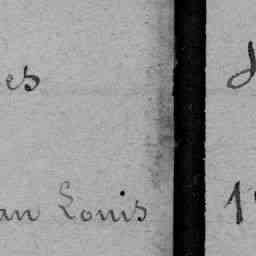 es
an Louis